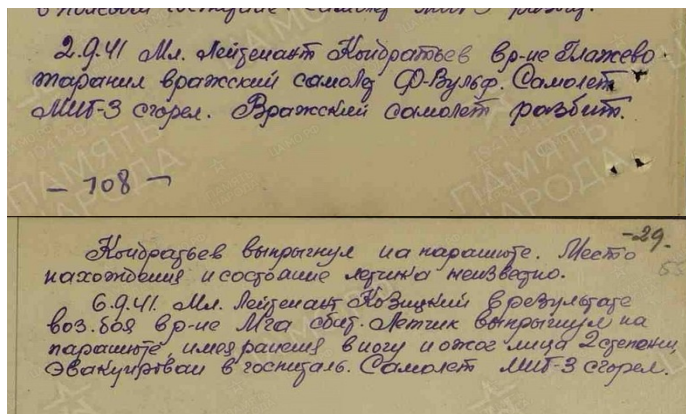 2.9.41 Мл. Лейтенант Кондратьев в р-не Глажево
таранил вражский самолет Ф-Вульф. Самолет
МИГ-3 сгорел. Вражский самолет разбит.
- 108 -
-29.
Кондратьев выпрыгнул на парашюте. Место
нахождения и состояние летчика неизвестно.
6.9.41. Мл. Лейтенант Козицкий в результате
воз. боя в р-не Мга сбит. Летчик выпрыгнул на
парашюте, имея ранения в ногу и ожог лица 2 степени,
эвакуирован в госпиталь. Самолет МИГ-3 сгорел.
ПАМЯТЬ
НАРОДА